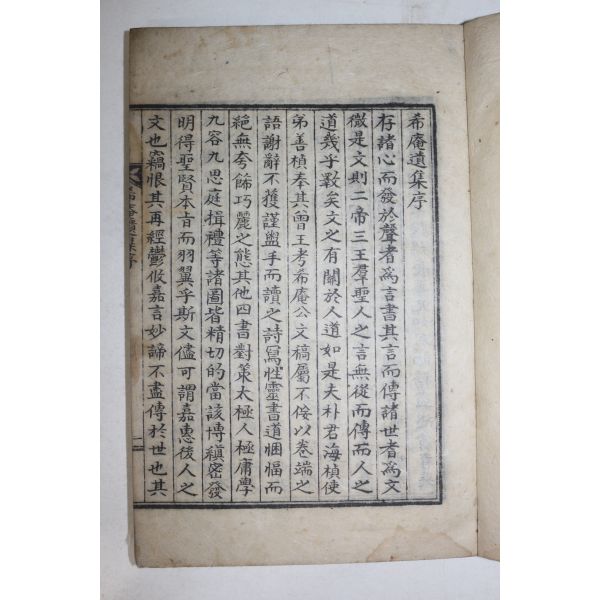 希庵遺集序
存諸心而發於聲者爲言書其言而傳諸世者爲文
微是文則二帝三王羣聖人之言無從而傳而人之
道幾乎斁矣文之有關於人道如是夫朴君海楨使
弟善楨奉其曾王考希庵公文稿屬不佞以卷端之
語謝辭不獲謹盥手而讀之詩寫性靈書道悃愊而
絶無夸餙巧麗之態其他四書對策太極人極庸學
九容九思庭揖禮等諸圖皆精切的當該博縝密發
明得聖賢本旨而羽翼乎斯文儘可謂嘉惠後人之
文也竊恨其再經鬱攸嘉言妙諦不盡傳於世也其
希庵遺集序
一